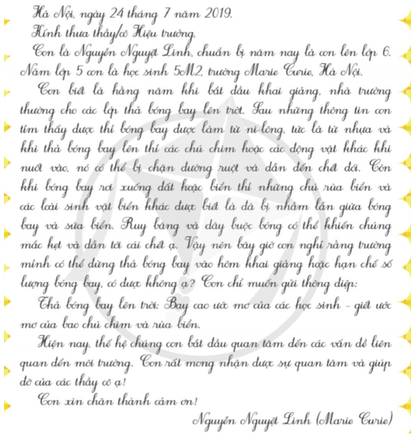 Hà Nội, ngày 24 tháng 7 năm 2019.
Kính thưa thầy/cô Hiệu trưởng,
Con là Nguyễn Nguyệt Linh, chuẩn bị năm nay là con lên lớp 6.
Năm lớp 5 con là học sinh 5M2, trường Marie Curie, Hà Nội.
Con biết là hàng năm khi bắt đầu khai giảng, nhà trường
thường cho các lớp thả bóng bay lên trời. Sau những thông tin con
tìm thấy được thì bóng bay được làm từ ni-lông, tức là từ nhựa và
khi thả bóng bay lên thì các chú chim hoặc các động vật khác khi
nuốt vào, nó có thể bị chặn đường ruột và dẫn đến chết đói. Còn
khi bóng bay rơi xuống đất hoặc biển thì những chú rùa biển và
các loài sinh vật biển khác được biết là đã bị nhầm lẫn giữa bóng
bay và sứa biển. Ruy băng và dây buộc bóng có thể khiến chúng
mắc kẹt và dẫn tới cái chết ạ. Vậy nên bây giờ con nghĩ rằng trường
mình có thể dừng thả bóng bay vào hôm khai giảng hoặc hạn chế số
lượng bóng bay, có được không ạ? Con chỉ muốn gửi thông điệp:
Thả bóng bay lên trời: Bay cao ước mơ của các học sinh - giết ước
mơ của bao chú chim và rùa biển.
Hiện nay, thế hệ chúng con bắt đầu quan tâm đến các vấn đề liên
quan đến môi trường. Con rất mong nhận được sự quan tâm và giúp
đỡ của các thầy cô ạ!
Con xin chân thành cảm ơn!
Nguyễn Nguyệt Linh (Marie Curie)